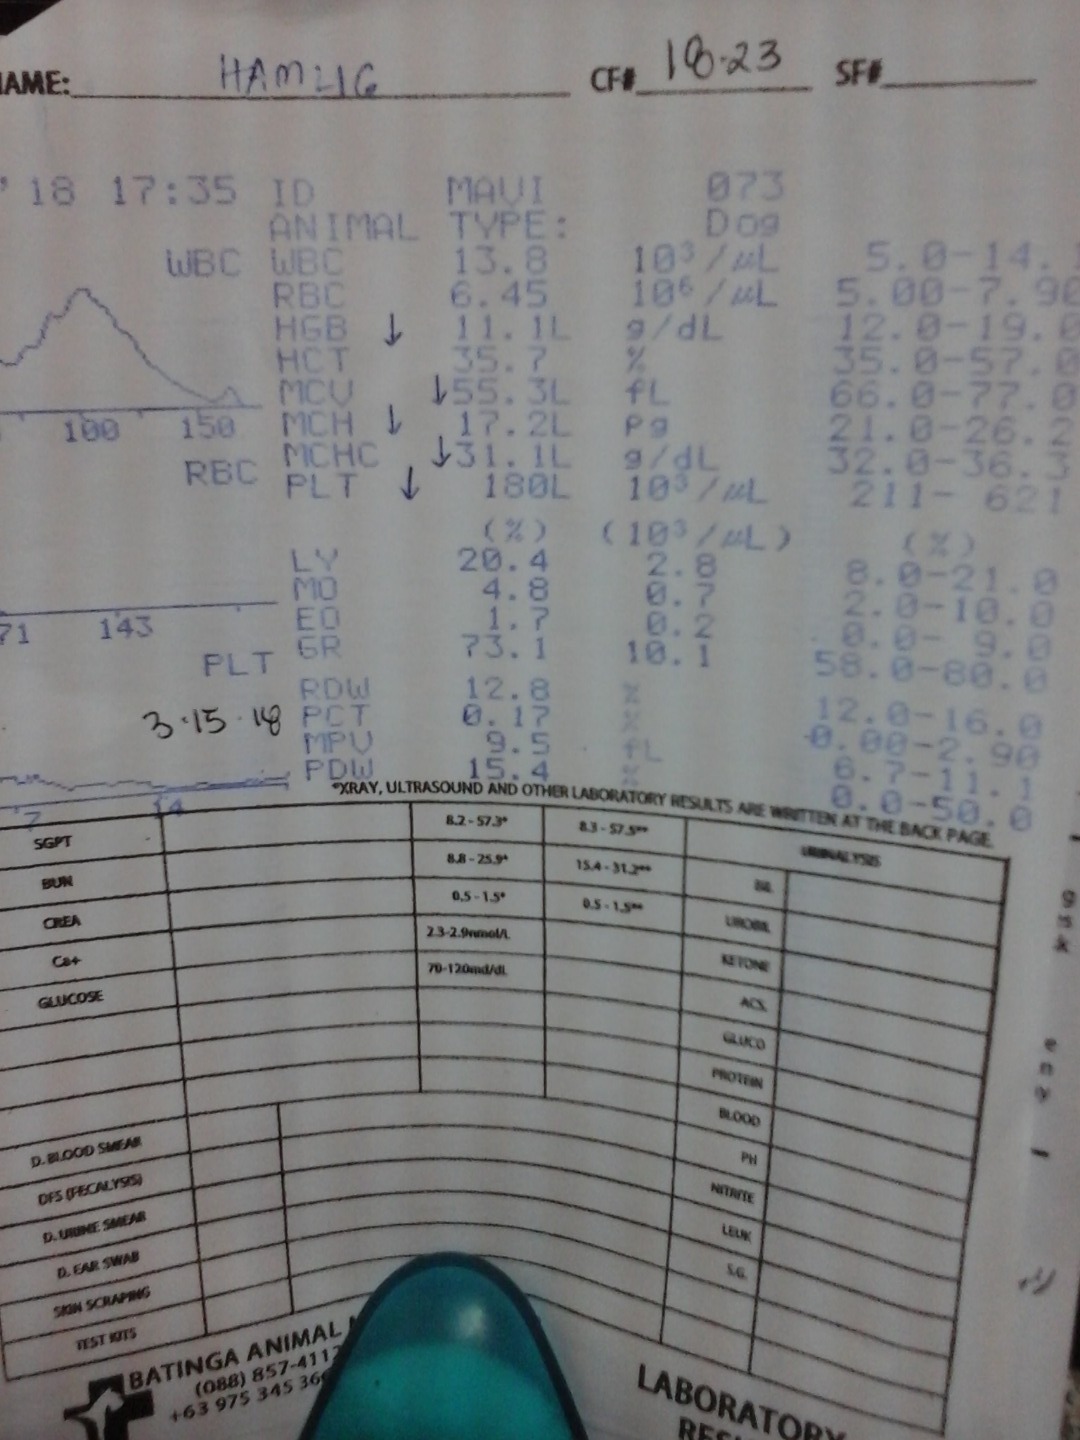 NAME: HAMLIG CF# 18-23 SF#
' 18 17:35 ID MAVI 073
ANIMAL TYPE: Dog
WBC WBC 13.8 10³/µL 5.0-14.
RBC 6.45 10⁶/µL 5.00-7.90
HGB ↓ 11.1L g/dL 12.0-19.0
HCT 35.7 % 35.0-57.0
MCV ↓ 55.3L fL 66.0-77.0
100 150 MCH ↓ 17.2L pg 21.0-26.2
RBC MCHC ↓ 31.1L g/dL 32.0-36.3
PLT ↓ 180L 10³/µL 211- 621
(%) (10³/µL) (%)
LY 20.4 2.8 8.0-21.0
MO 4.8 0.7 2.0-10.0
71 143 EO 1.7 0.2 0.0- 9.0
PLT GR 73.1 10.1 58.0-80.0
RDW 12.8 % 12.0-16.0
3-15-18 PCT 0.17 % 0.00-2.90
MPV 9.5 fL 6.7-11.1
PDW 15.4 % 0.0-50.0
7 14
*XRAY, ULTRASOUND AND OTHER LABORATORY RESULTS ARE WRITTEN AT THE BACK PAGE.
SGPT 8.2 - 57.3* 8.3 - 57.5** URINALYSIS
BUN 8.8 - 25.9* 15.4 - 31.2** BIL
CREA 0.5 - 1.5* 0.5 - 1.5** UROBIL
Ca+ 2.3-2.9nmol/L KETONE
GLUCOSE 70-120md/dL ACS.
GLUCO
PROTEIN
BLOOD
D. BLOOD SMEAR PH
DFS (FECALYSIS) NITRITE
D. URINE SMEAR LEUK
D. EAR SWAB S.G.
SKIN SCRAPING
TEST KITS
BATINGA ANIMAL
(088) 857-411
+63 975 345 36
LABORATORY